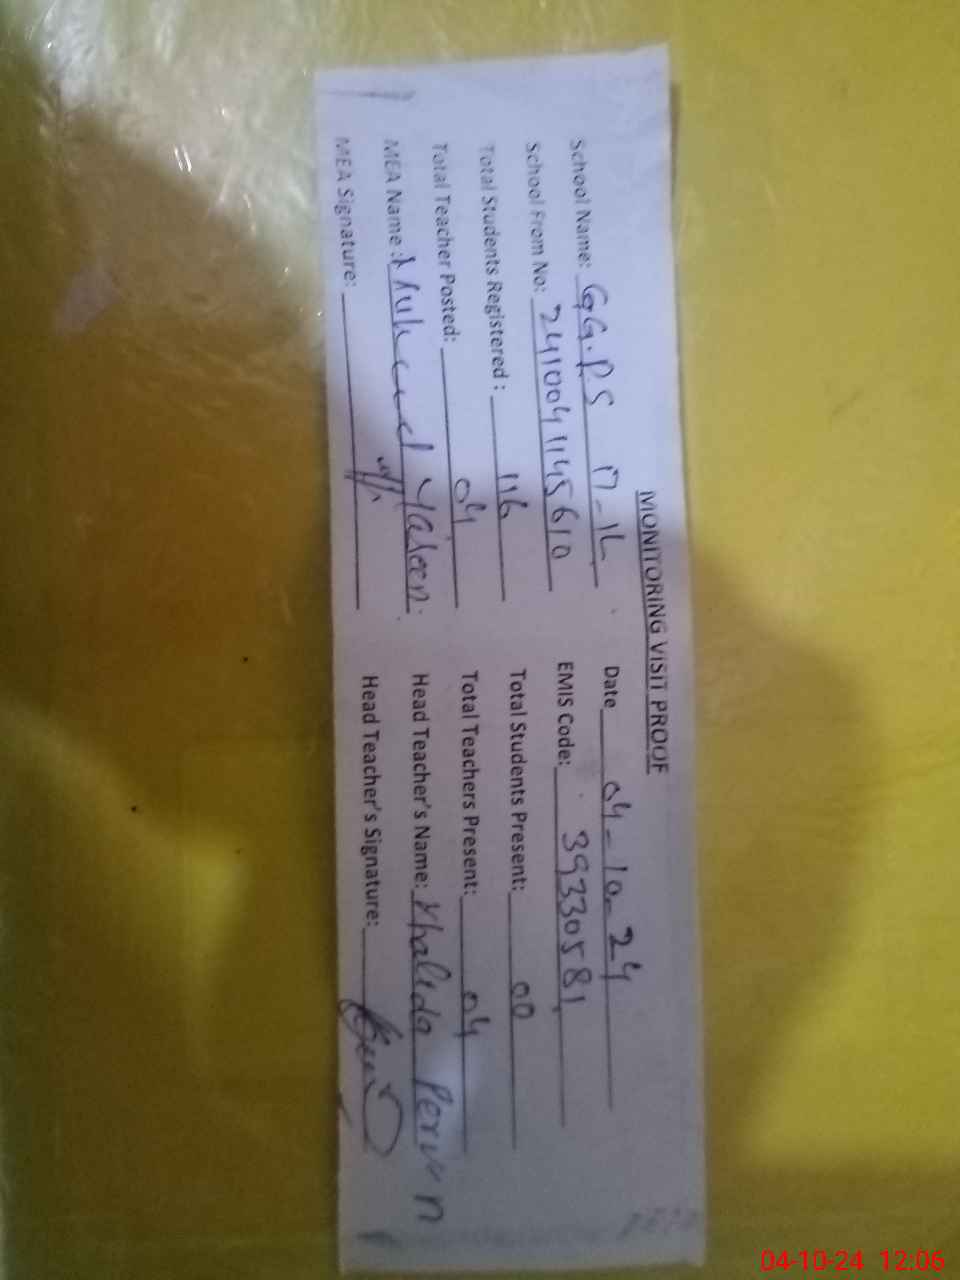 MONITORING VISIT PROOF
School Name: GG.PS 17-1L Date 04-10-24
School From No: 241004 1145610 EMIS Code: 39330581
Total Students Registered : 116 Total Students Present: 00
Total Teacher Posted: 04 Total Teachers Present: 04
MEA Name : Yaseen. Head Teacher's Name: Khalida Perven
MEA Signature: Head Teacher's Signature:
04-10-24 12:06